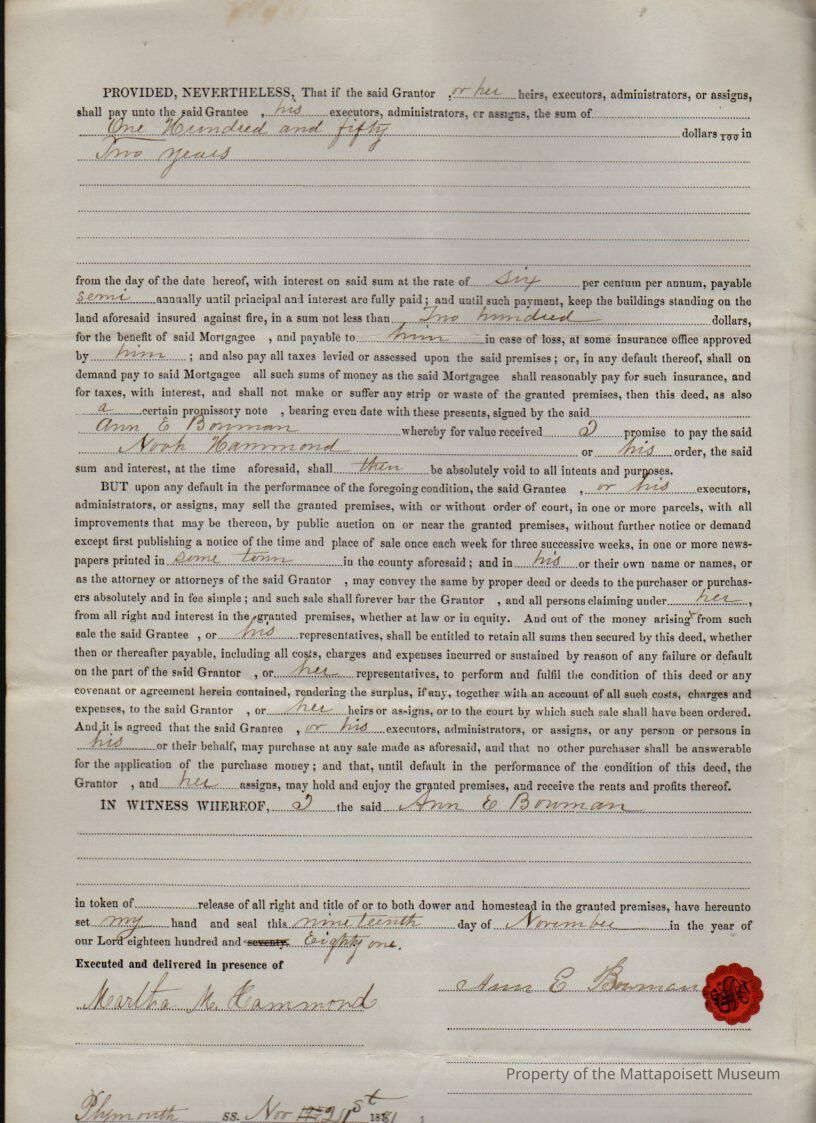 PROVIDED, NEVERTHELESS, That if the said Grantor , or her heirs, executors, administrators, or assigns,
shall pay unto the said Grantee , his executors, administrators, or assigns, the sum of
One Hundred and fifty dollars 100 in
Two years
from the day of the date hereof, with interest on said sum at the rate of six per centum per annum, payable
semi annually until principal and interest are fully paid ; and until such payment, keep the buildings standing on the
land aforesaid insured against fire, in a sum not less than Two hundred dollars,
for the benefit of said Mortgagee , and payable to him in case of loss, at some insurance office approved
by him ; and also pay all taxes levied or assessed upon the said premises ; or, in any default thereof, shall on
demand pay to said Mortgagee all such sums of money as the said Mortgagee shall reasonably pay for such insurance, and
for taxes, with interest, and shall not make or suffer any strip or waste of the granted premises, then this deed, as also
a certain promissory note , bearing even date with these presents, signed by the said
Ann E Bowman whereby for value received I promise to pay the said
Noah Hammond or his order, the said
sum and interest, at the time aforesaid, shall then be absolutely void to all intents and purposes.
BUT upon any default in the performance of the foregoing condition, the said Grantee , or his executors,
administrators, or assigns, may sell the granted premises, with or without order of court, in one or more parcels, with all
improvements that may be thereon, by public auction on or near the granted premises, without further notice or demand
except first publishing a notice of the time and place of sale once each week for three successive weeks, in one or more news-
papers printed in some town in the county aforesaid ; and in his or their own name or names, or
as the attorney or attorneys of the said Grantor , may convey the same by proper deed or deeds to the purchaser or purchas-
ers absolutely and in fee simple ; and such sale shall forever bar the Grantor , and all persons claiming under her ,
from all right and interest in the granted premises, whether at law or in equity. And out of the money arising from such
sale the said Grantee , or his representatives, shall be entitled to retain all sums then secured by this deed, whether
then or thereafter payable, including all costs, charges and expenses incurred or sustained by reason of any failure or default
on the part of the said Grantor , or her representatives, to perform and fulfil the condition of this deed or any
covenant or agreement herein contained, rendering the surplus, if any, together with an account of all such costs, charges and
expenses, to the said Grantor , or her heirs or assigns, or to the court by which such sale shall have been ordered.
And it is agreed that the said Grantee , or his executors, administrators, or assigns, or any person or persons in
his or their behalf, may purchase at any sale made as aforesaid, and that no other purchaser shall be answerable
for the application of the purchase money ; and that, until default in the performance of the condition of this deed, the
Grantor , and her assigns, may hold and enjoy the granted premises, and receive the rents and profits thereof.
IN WITNESS WHEREOF, I the said Ann E Bowman
in token of release of all right and title of or to both dower and homestead in the granted premises, have hereunto
set my hand and seal this nineteenth day of November in the year of
our Lord eighteen hundred and seventy. Eighty one.
Executed and delivered in presence of
Ann E Bowman
Martha M. Hammond
Property of the Mattapoisett Museum
Plymouth ss. Nov 21st 1881